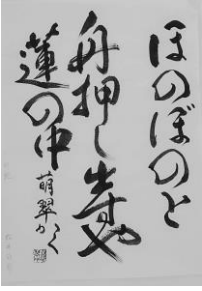 ほのぼのと
舟押し出すや
蓮の中
萌翠かく